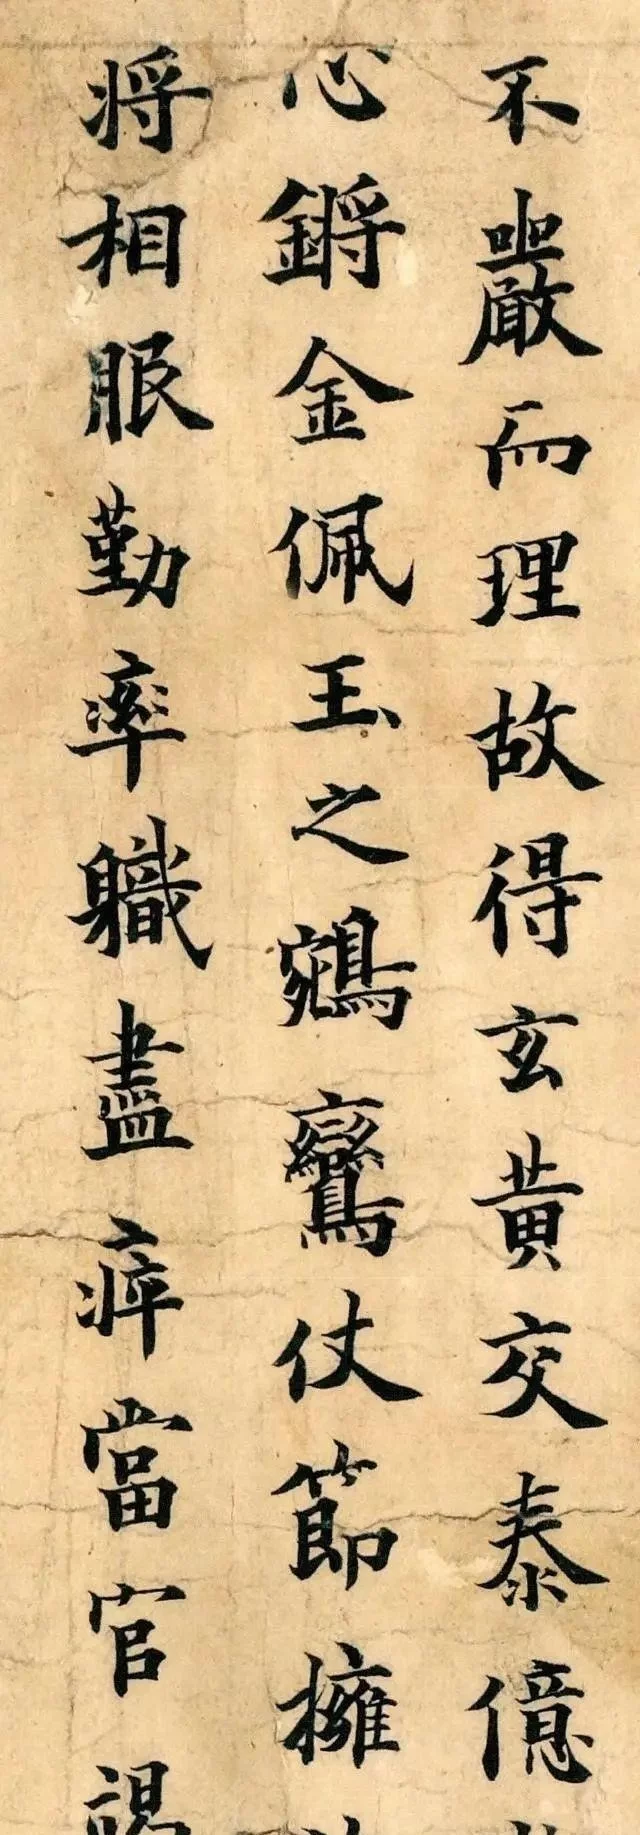 不嚴而理故得玄黄交泰億
心鏘金佩玉之鵷鸞仗節擁
将相服勤率職盡瘁當官謁